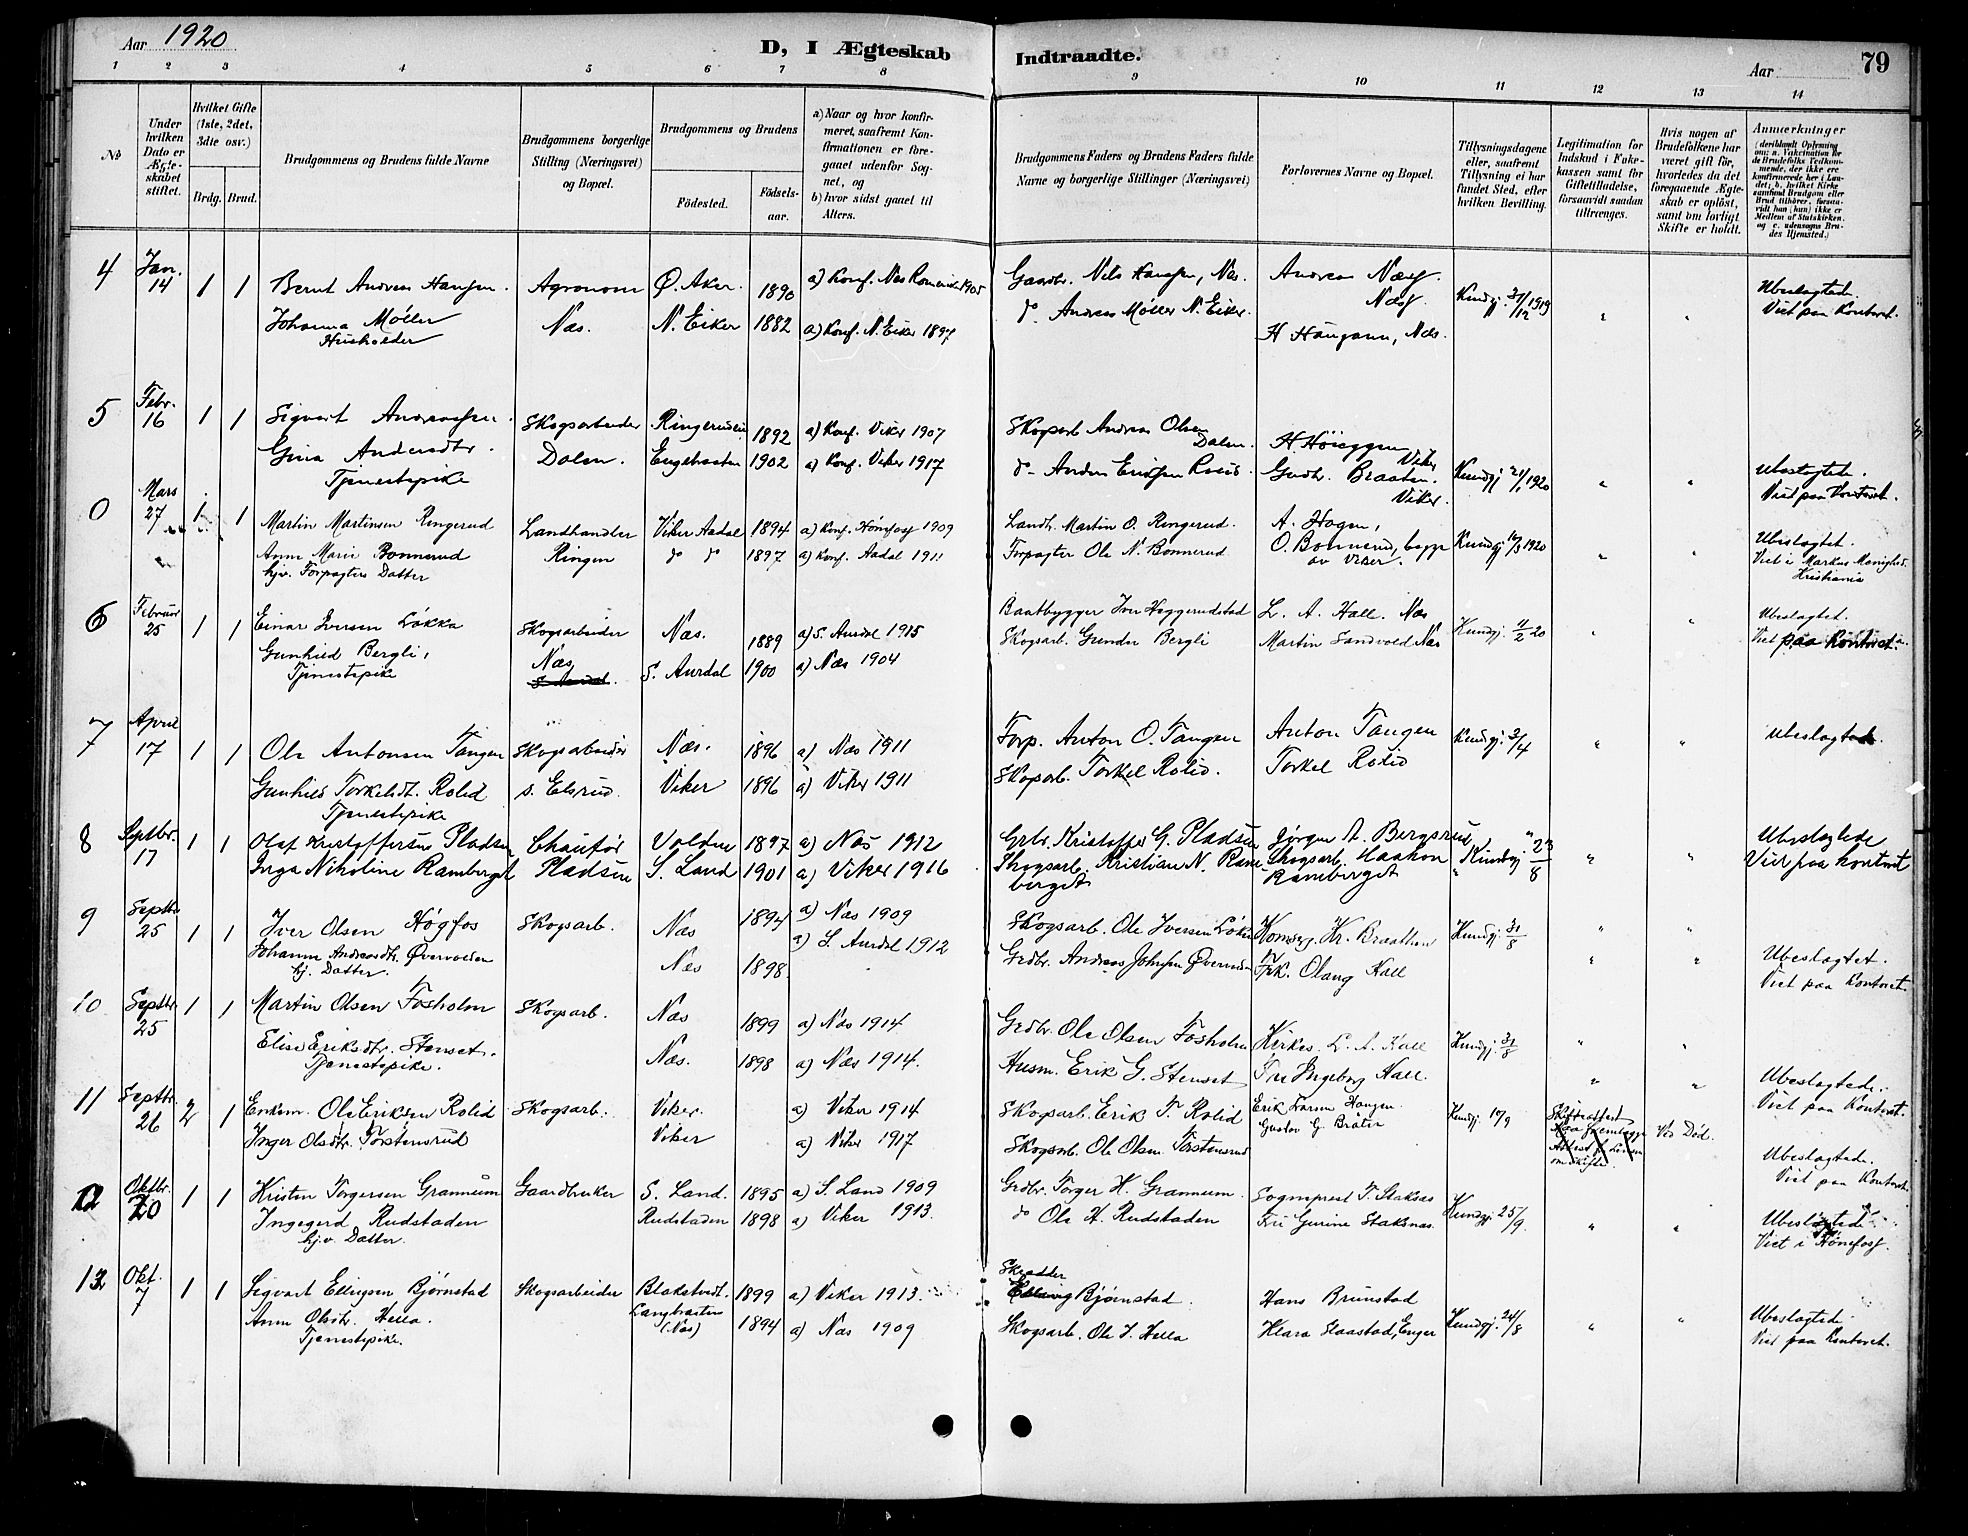 Aar 1920
D, I Ægteskab Indtraadte.
Aar
79
1 2 3 4 5 6 7 8 9 10 11 12 13 14
No
Under hvilken Dato er Ægteskabet stiftet.
Hvilket Gifte (1ste, 2det, 3dte osv.)
Brdg. Brud.
Brudgommens og Brudens fulde Navne
Brudgommens borgerlige Stilling (Næringsvei) og Bopæl.
Brudgommens og Brudens
Fødested.
Fødselsaar.
a) Naar og hvor konfirmeret, saafremt Konfirmationen er foregaaet udenfor Sognet, og
b) hvor sidst gaaet til Alters.
Brudgommens Faders og Brudens Faders fulde Navne og borgerlige Stillinger (Næringsvei)
Forlovernes Navne og Bopæl.
Tillysningsdagene eller, saafremt Tillysning ei har fundet Sted, efter hvilken Bevilling.
Legitimation for Indskud i Fakekassen samt for Giftetilladelse, forsaavidt saadan tiltrænges.
Hvis nogen af Brudefolkene har været gift før, hvorledes da det foregaaende Ægteskab er opløst, samt om lovligt Skifte er holdt.
Anmerkninger (deriblandt Oplysning om: a. Vakcination for de Brudefolks Vedkommende, der ikke ere konfirmerede her i Landet, b. hvilket Kirkesamfund Brudgom eller Brud tilhører, forsaavidt han (hun) ikke er Medlem af Statskirken, og c. udensogns Brudes Hjemsted.)
4 Jan. 14 1 1 Bernt Andreas Hansen Agronom Ø. Aker 1890 a) Konf. Nes Romerike 1905 Gaardbr. Nils Hansen, Næs. Andreas Næss Næss Kundgj. 31/12 1919 " " Ubeslagtede.
Johanna Møller Næs. N. Eiker 1882 a) Konf. N. Eiker 1897 do Andreas Møller N. Eiker. H Haugann, Næs. Viet paa Kontoret.
Husholder
5 Febr. 16 1 1 Sigvart Andreassen Skogsarbeider Ringerudeie 1892 a) Konf. Viker 1907 Skogarb Andreas Olsen Dalen. H Høieggen Viker Kundgj 21/1 1920 " " Ubeslagtede.
Gina Andersdtr. Dalen. Engebraaten 1902 a) Konf. Viker 1917 do Anders Erichsen Gudbr. Braaten. Viker. Viet paa Kontoret.
Tjenestepike
0 Mars 27 1 1 Martin Martinsen Ringerud Landhandler Viker Aadal 1894 a) Konf. Hønefoss 1909 Landh. Martin O. Ringerud. A. Hagen, Kundgj 10/3 1920 " " Ubeslagtet.
Anne Marie Bonnerud Ringen do do 1897 a) Konf. Aadal 1911 Forpagter Ole N. Bonnerud O. Bonnerud, begge av Viker. Viet i Markus Menighed. Kristiania
hjv. Forpagters Datter
6 Februar 25 1 1 Einar Iversen Løkka Skogsarbeider Næs. 1889 a) S. Aurdal 1915 Baatbygger Iver Heggerudstad L. A. Hall. Næs Kundgj. 11/2 20 " " Ubeslagtet.
Gunhild Bergli, Næs S. Aurdal S. Aurdal 1900 a) Næs 1904 Skogsarb. Gunder Bergli Martin Sandvold Næs Viet paa Kontoret.
Tjenestepike
7 April 17 1 1 Ole Antonsen Tangen Skogsarbeider Næs. 1896 a) Næs 1911 Forp. Anton O. Tangen Anton Tangen Kundgj. 3/4 " " Ubeslagtede.
Gunhild Torkeldt. Rolid s. Elsrud. Viker 1896 a) Viker 1911 Skogarb. Torkel Rolid. Torkel Rolid
Tjenestepike
8 Septbr. 17 1 1 Olaf Kristoffersen Pladsen Chauffør Valdres 1897 a) Næs 1912 Grbr. Kristoffer G. Pladsen Jørgen A. Bergsrud Kundgj 23/8 " " Ubeslegtede
Inga Nikoline Ramberget Pladsen S. Land 1901 a) Viker 1916 Skogsarb. Kristian N. Ramberget Skogsarb. Haakon Ramberget Viet paa kontoret
9 Septbr. 25 1 1 Iver Olsen Høgfos Skogsarb. Næs 1894 a) Næs 1909 Skogsarb. Ole Iversen Løken Hr. Braathen Kundgj. 31/8 " "
Johanne Andreasdtr. Øvervolden Næs 1898 a) S. Aurdal 1912 Grdbr. Andreas Johnsen Øvervolden Frk. Olaug Hall " " Ubeslagtet.
hj. Datter. Viet paa Kontoret.
10 Septbr. 25 1 1 Martin Olsen Fosholm Skogsarb. Næs 1899 a) Næs 1914 Grdbr. Ole Olsen Fosholm Kirkes. L. A. Hall Kundgj. 31/8 " "
Elise Eriksdtr. Stenset. Næs. 1898 a) Næs 1914. Husm. Erik G. Stenset Fru Ingeborg Hall. " " Ubeslagtede.
Tjenestepike. Viet paa Kontoret.
11 Septbr. 26 2 1 Enkem. Ole Eriksen Rolid Skogsarb. Viker. a) Viker 1914 Skogsarb. Erik T. Rolid Erik Larsen Haugen. Kundgj. 10/9 Skifteattest Ved Død.
Inger Olsdtr. Torstensrud Viker a) Viker 1917 Skogsarb. Ole Olsen Torstensrud Gustav G. Bråten Ubeslagtede.
Viet paa Kontoret.
12 Oktbr. 20 1 1 Kristen Torgersen Grannum Gaardbruker S. Land. 1895 a) S. Land 1909 Grdbr. Torger H. Grannum. Sogneprest T. Staksnæs Kundgj. 25/9. " " Ubeslagtede
Ingegerd Rudstaden Rudstaden 1898 a) Viker 1913. do Ole H. Rudstaden Fru Gurine Staksnæs. Viet i Hønefoss.
hj.v. Datter.
13 Okt. 7 1 1 Sigvart Ellingsen Bjørnstad Skogsarbeider 1899 a) Viker 1913. Skrædder Elling Bjørnstad. Hans Brunstad Kundgj. 24/8 " " Ubeslagtede.
Anne Olsdtr. Hella. Langbraaten (Næs) 1894 a) Næs 1909 Skogsarb. Ole J. Hella Klara Staastad, Enger Viet paa Kontoret.
Tjenestepike.